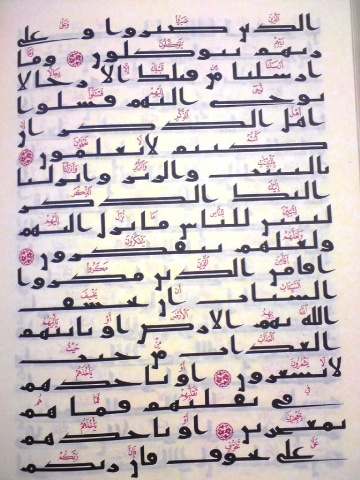 الذين صبروا و على
ربهم يتوكلون وما
ارسلنا من قبلك الا رجالا
نوحى اليهم فسلوا
اهل الذكر ان
كنتم لا تعلمون
بالبينت والزبر وانزلنا
اليك الذكر
لتبين للناس ما نزل اليهم
ولعلهم يتفكرون
افامن الذين مكروا
السيات ان يخسف
الله بهم الارض او ياتيهم
العذاب من حيث
لا يشعرون او ياخذهم
فى تقلبهم فما هم
بمعجزين او ياخذهم
على تخوف فان ربكم